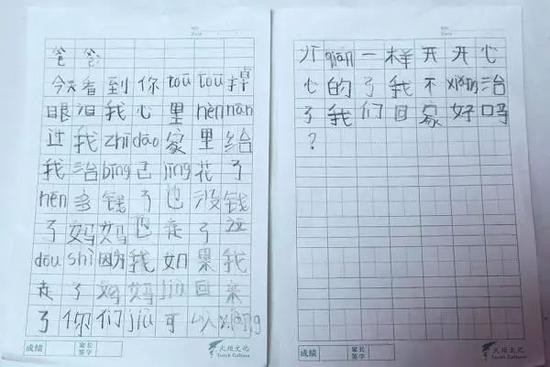 爸爸:
今天看到你tōu tōu掉
眼泪我心里hěn nán
过我zhī dào家里给
我治bìng已jīng花了
hěn多钱了也没钱
了妈妈也走了这
dōu shì因为我如果我
走了妈妈jiù回来
了你们jiù可以xiàng
成绩 家长签字 火炬文化
Torch Culture
以qián一样开开心
心的了我不xiǎng治
了我们回家好吗
?
成绩 家长签字 火炬文化
Torch Culture